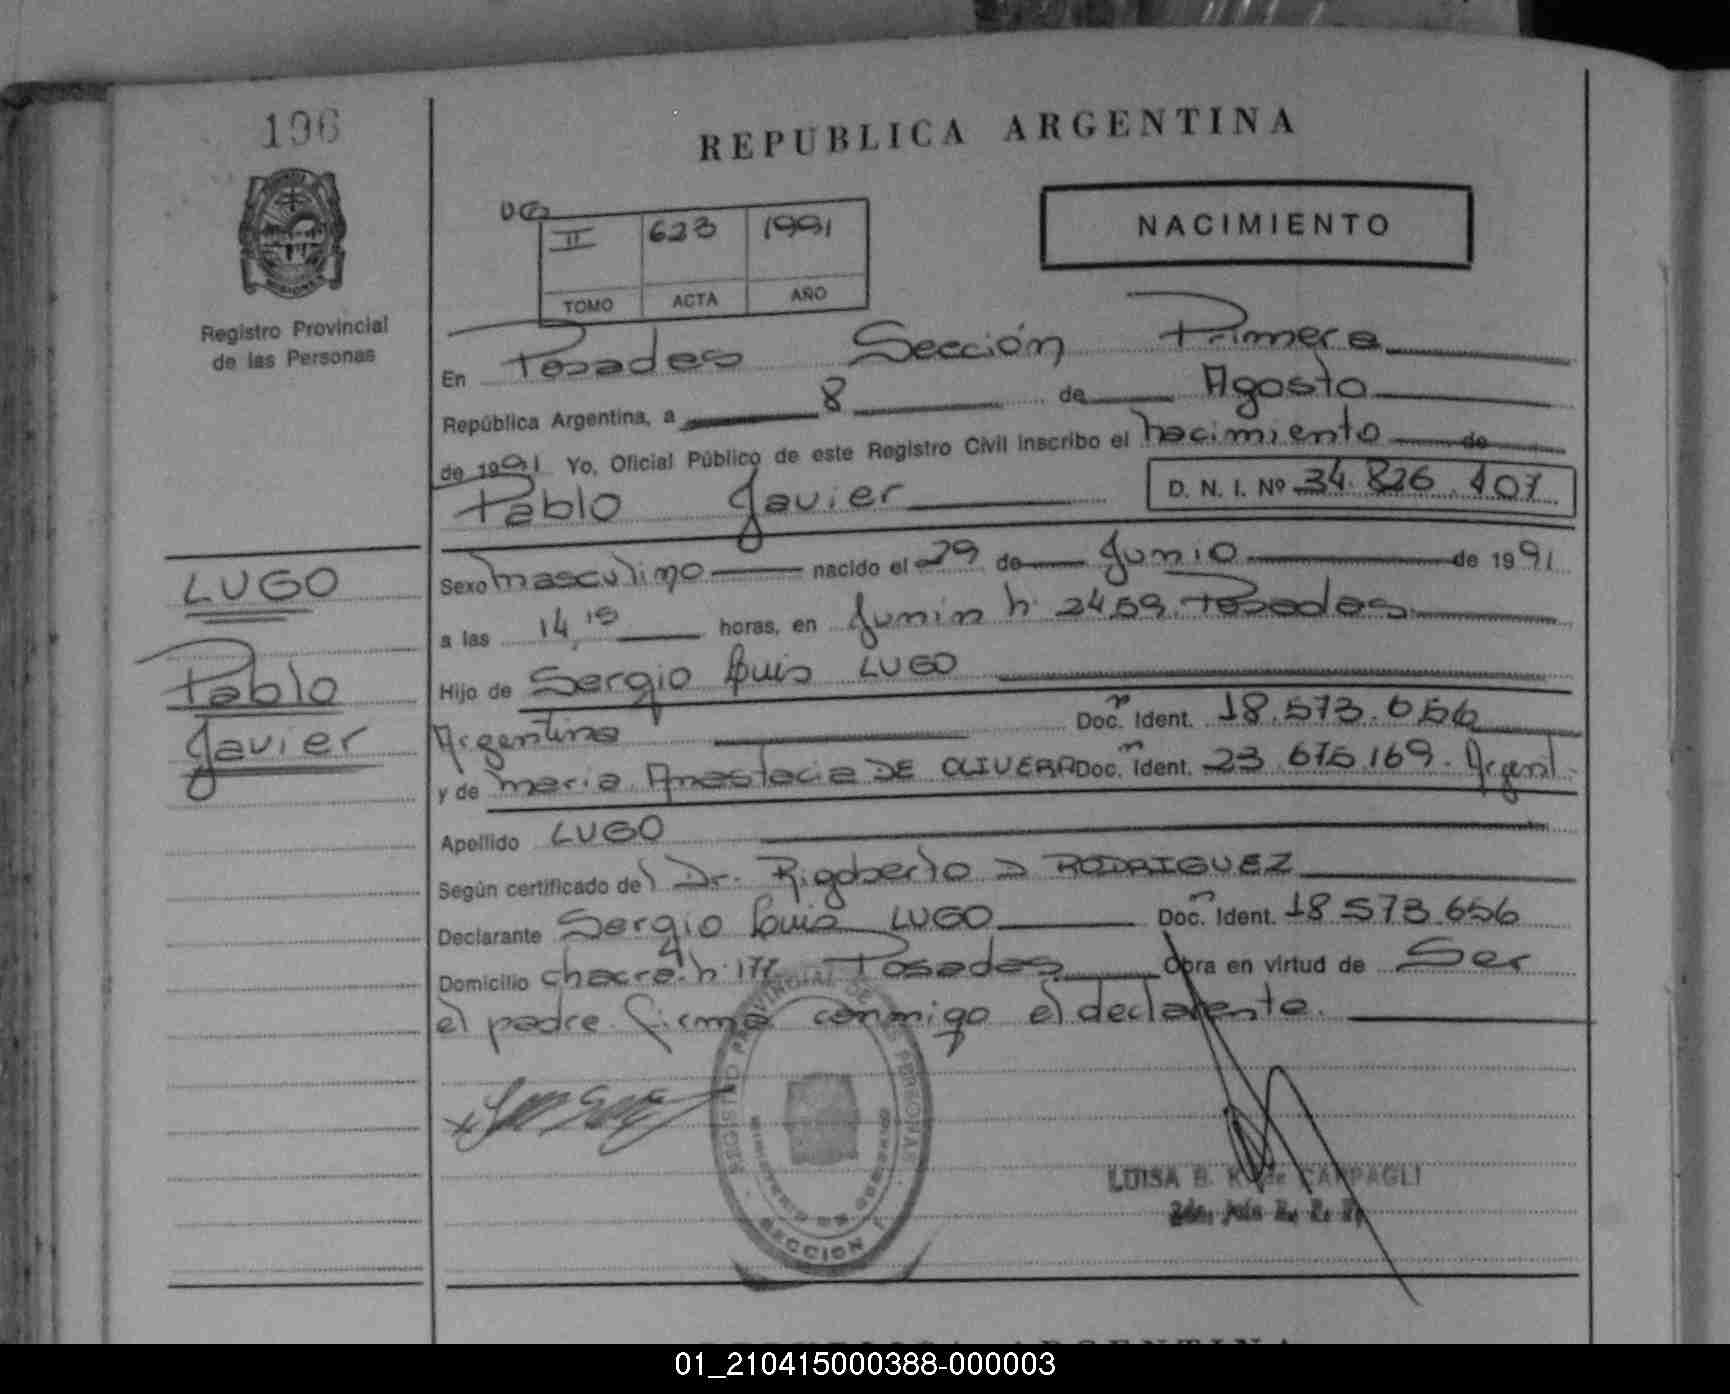 196
REPUBLICA ARGENTINA
NACIMIENTO
II 623 1991
TOMO ACTA AÑO
Registro Provincial
de las Personas
En Posadas Sección Primera
República Argentina, a 8 de Agosto
de 1991 Yo, Oficial Público de este Registro Civil inscribo el nacimiento de
Pablo Javier D. N. I. Nº 34.826.107
LUGO
Pablo
Javier
Sexo masculino nacido el 29 de Junio de 1991
a las 14,15 horas, en Junin n. 2459. Posadas
Hijo de Sergio Luis LUGO
Argentino Doc. Ident. 18.573.656
y de Maria Anastacia DE OLIVERA Doc. Ident. 23.675.169. Argent.
Apellido LUGO
Según certificado del Dr. Rigoberto D RODRIGUEZ
Declarante Sergio Luis LUGO Doc. Ident. 18.573.656
Domicilio chacra n. 177 Posadas Obra en virtud de Ser
el padre. firma conmigo el declarante.
REGISTRO PROVINCIAL DE LAS PERSONAS
MINISTERIO DE GOBIERNO
SECCION 1
LUISA B. K. de CAPPAGLI
REPUBLICA ARGENTINA
01_210415000388-000003